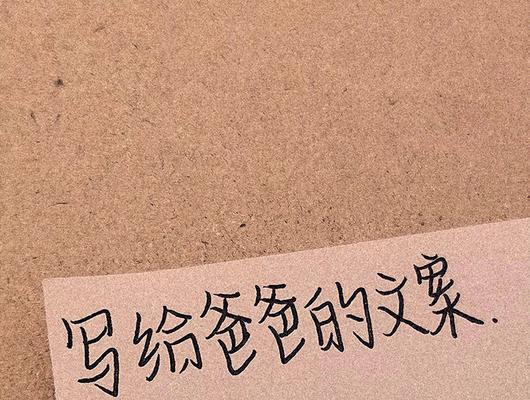 写给爸爸的文案.